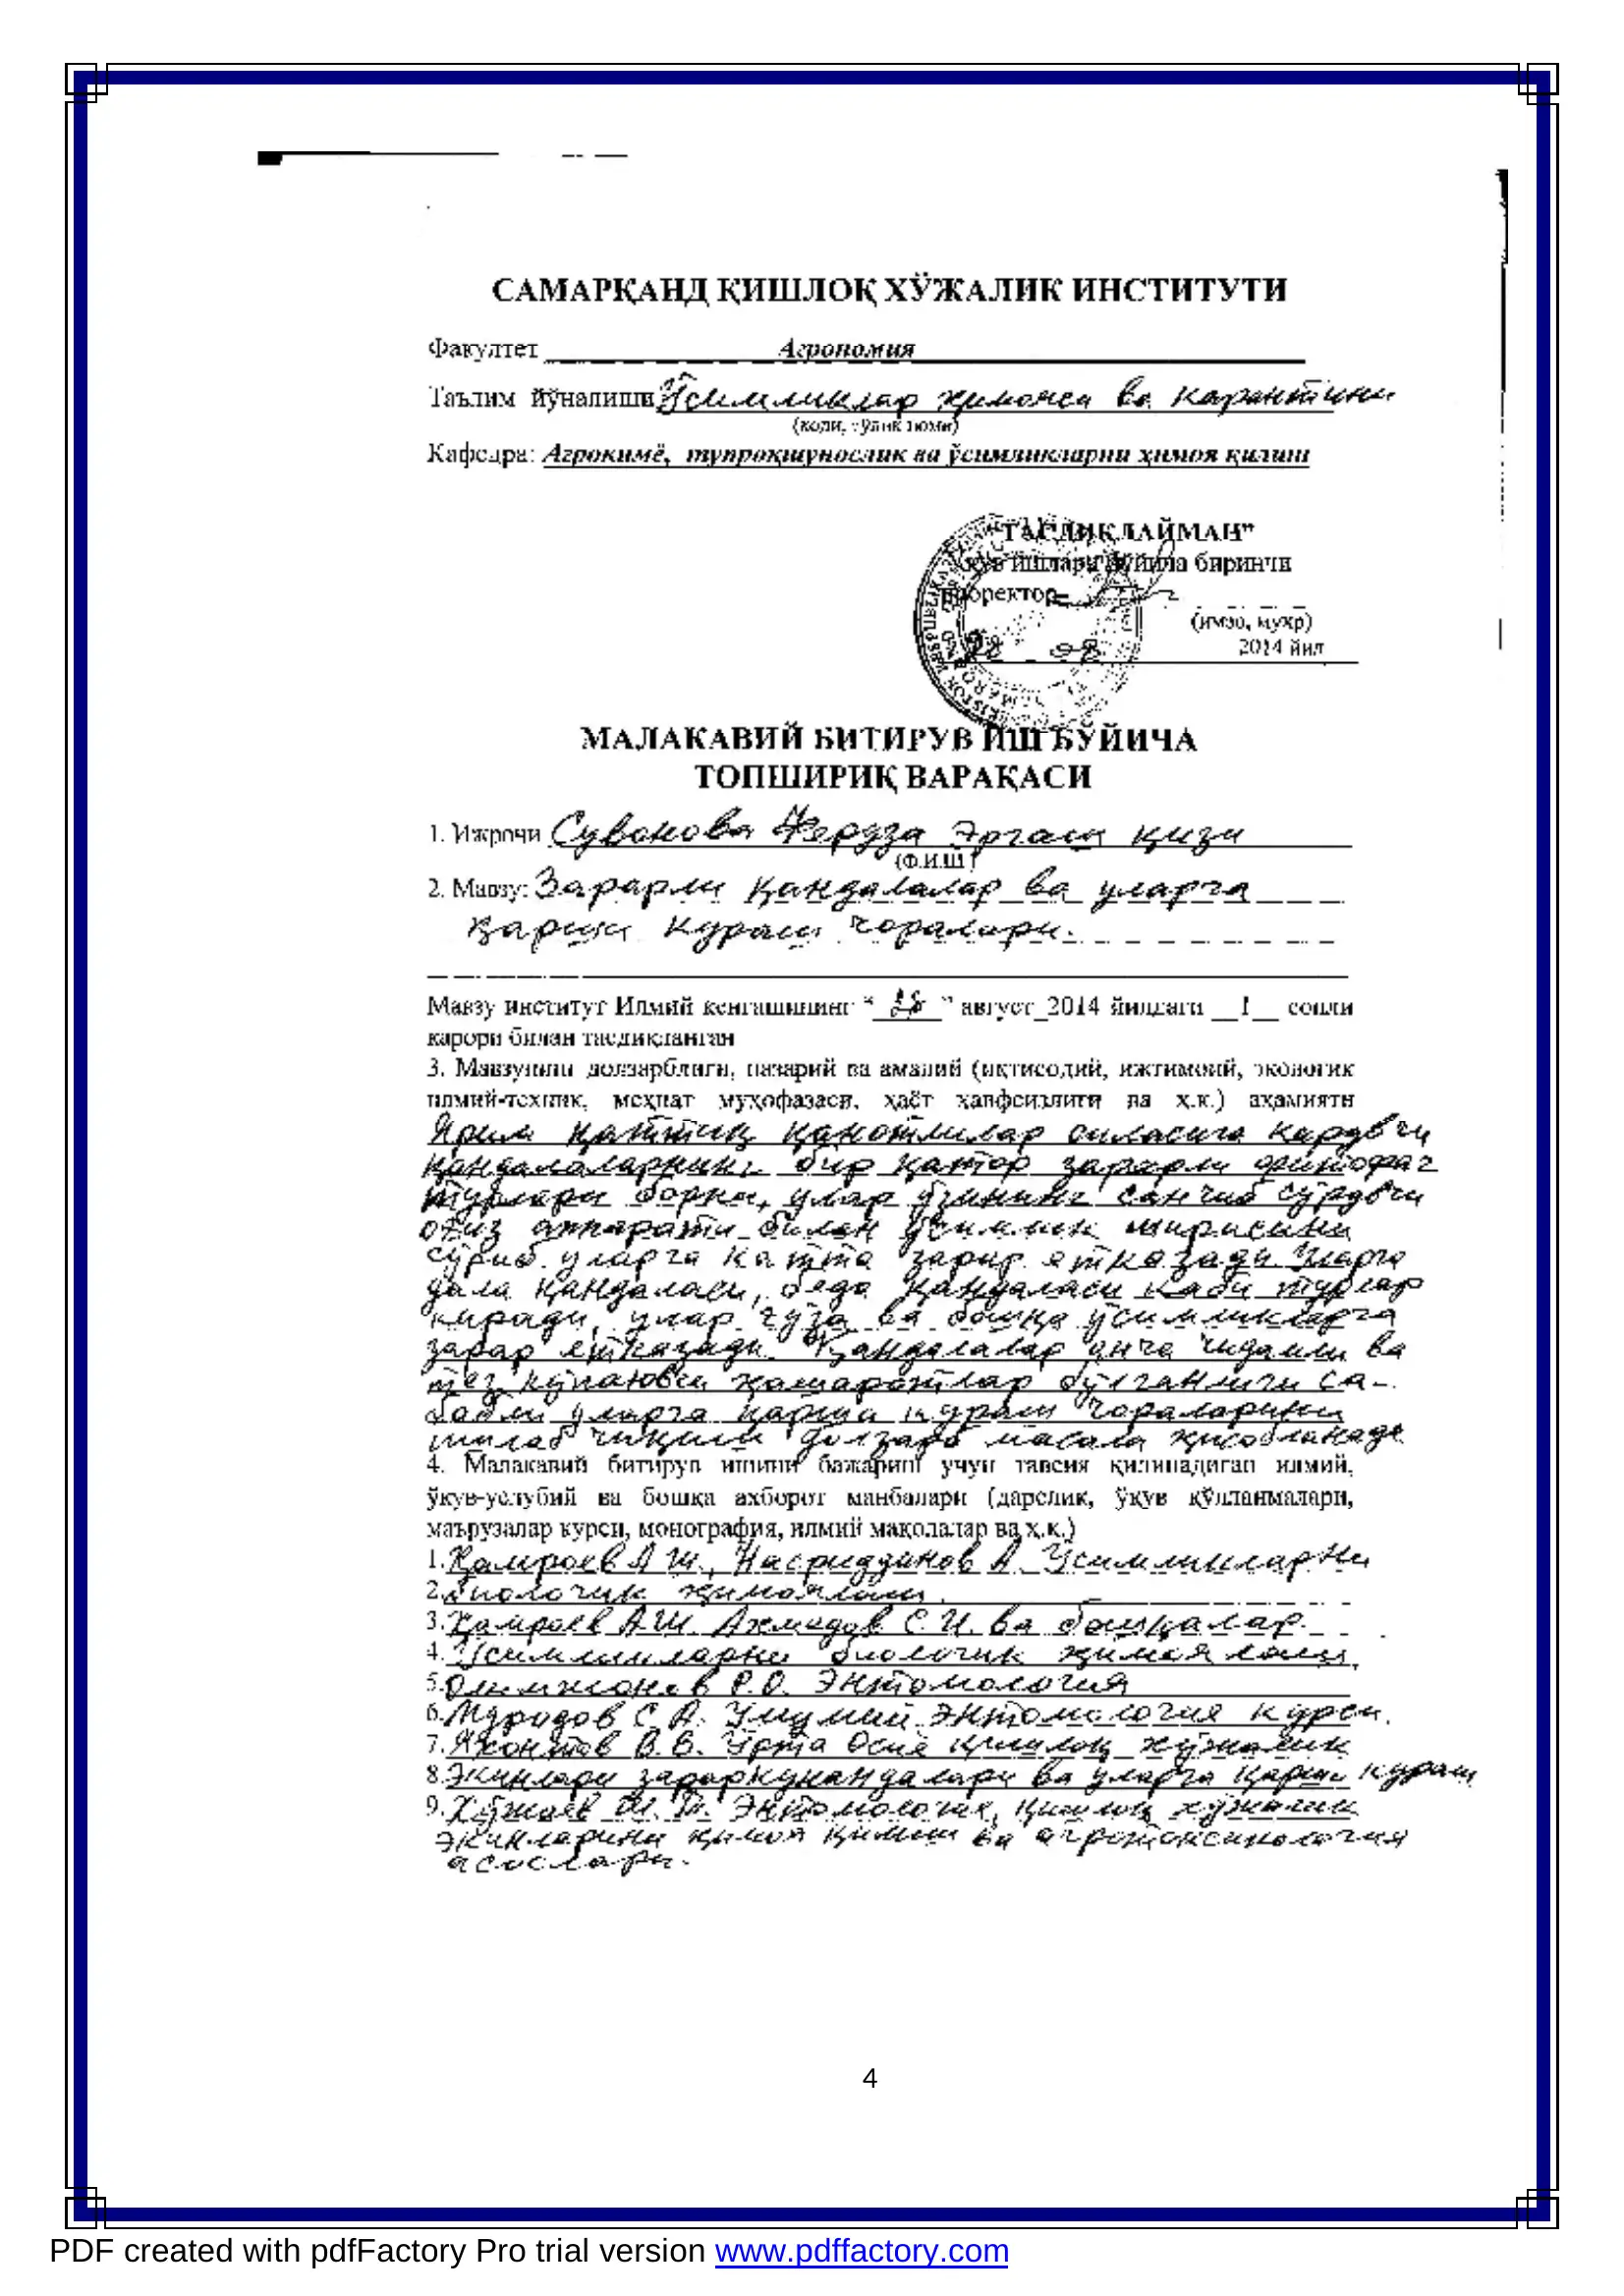 САМАРҚАНД ҚИШЛОҚ ХЎЖАЛИК ИНСТИТУТИ
Факултет Агрономия
Таълим йўналиши Ўсимликлар ҳимояси ва карантини
(коди, тўлиқ номи)
Кафедра: Агрокимё, тупроқшунослик ва ўсимликларни ҳимоя қилиш
"ТАСДИҚЛАЙМАН"
Ўқув ишлари бўйича биринчи
проректор
(имзо, муҳр)
28 08 2014 йил
МАЛАКАВИЙ БИТИРУВ ИШ БЎЙИЧА
ТОПШИРИҚ ВАРАҚАСИ
1. Ижрочи Сувонова Феруза Эргаш қизи
(Ф.И.Ш)
2. Мавзу: Зарарли қандалалар ва уларга
қарши кураш чоралари.
Мавзу институт Илмий кенгашининг "28" август_2014 йилдаги __1__ сонли
қарори билан тасдиқланган
3. Мавзунинг долзарблиги, назарий ва амалий (иқтисодий, ижтимоий, экологик
илмий-техник, меҳнат муҳофазаси, ҳаёт ҳавфсизлиги ва ҳ.к.) аҳамияти
Ярим қаттиқ қанотлилар оиласига кардвчи
қандалаларнинг бир қатор зарарли фитофаг
турлари борки, улар ўзининг санчиб сўрувчи
оғиз аппарати билан ўсимлик ширасини
сўриб уларга катта зарар етказади Уларга
дала қандаласи, беда қандаласи каби турлар
киради, улар ғўза ва бошқа ўсимликларга
зарар етказади. Қандалалар анча чидамли ва
тез кўпаювчи ҳашаротлар бўлганлиги са-
бабли уларга қарши кураш чораларини
ишлаб чиқиш долзарб масала ҳисобланади
4. Малакавий битирув ишини бажариш учун тавсия қилинадиган илмий,
ўқув-услубий ва бошқа ахборот манбалари (дарслик, ўқув қўлланмалари,
маърузалар курси, монография, илмий мақолалар ва ҳ.к.)
1. Ҳамроев А Ш., Насриддинов А. Ўсимликларни
2. биологик ҳимоялаш.
3. Ҳамроев А.Ш. Ахмедов С.И. ва бошқалар.
4. Ўсимликларни биологик ҳимоялаш.
5. Олимжонов Р.О. Энтомология
6. Муродов С.А. Умумий энтомология курси.
7. Яхонтов В.В. Ўрта Осиё қишлоқ хўжалик
8. Экинлари зараркунандалари ва уларга қарши кураш
9. Хўжаев Ш.Т. Энтомология, қишлоқ хўжалик
экинларини ҳимоя қилиш ва агротоксикология
асослари.
4
PDF created with pdfFactory Pro trial version www.pdffactory.com